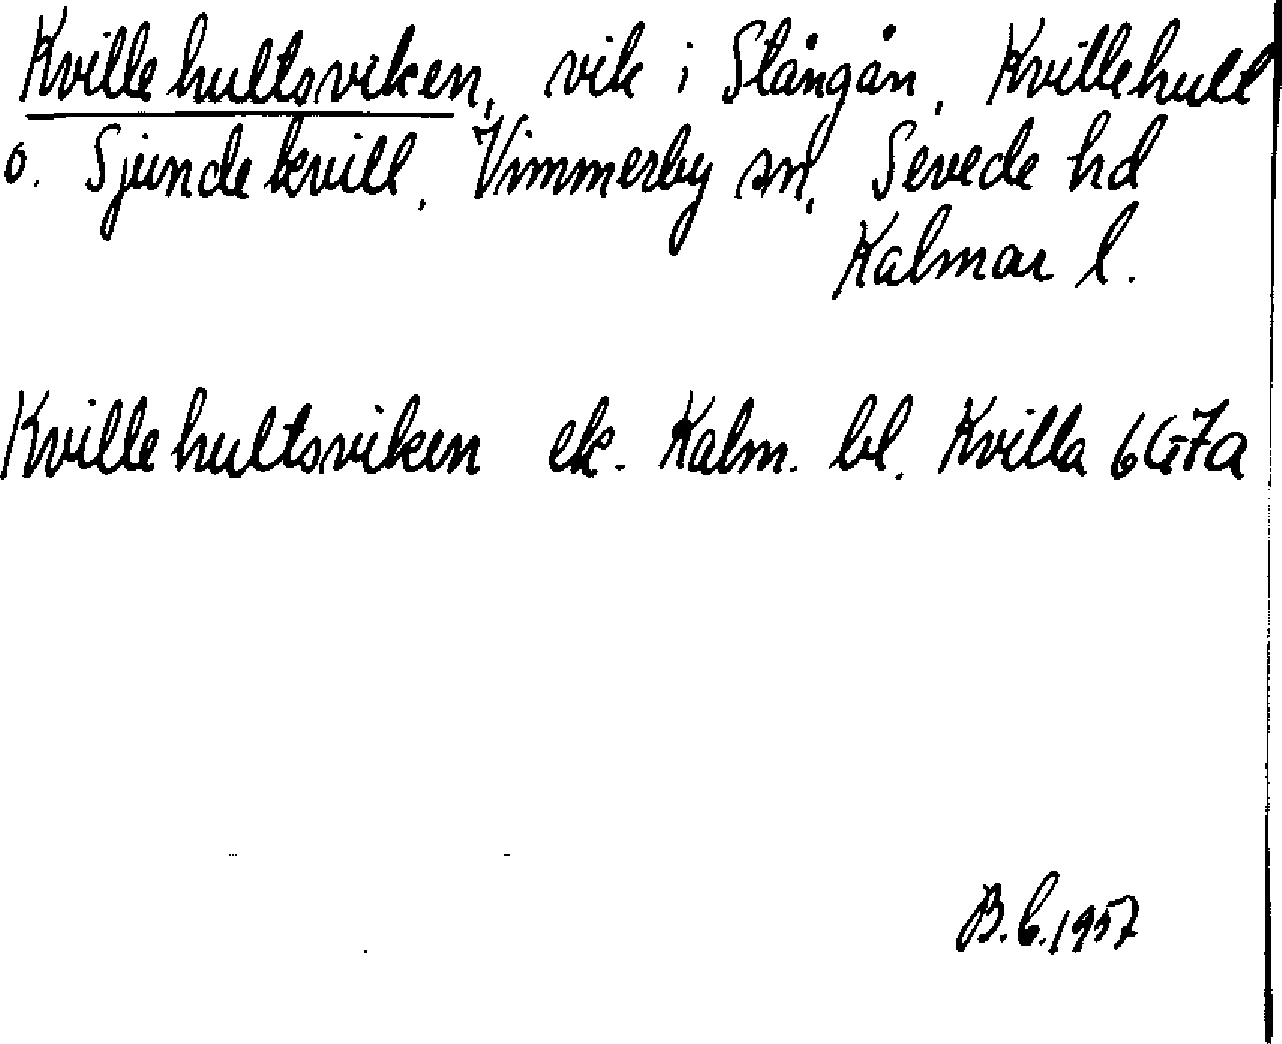 Kvillehultsviken, vik i Stångån, Kvillehult
o. Sjundekvill, Vimmerby sn, Sevede hd
Kalmar l.
Kvillehultsviken ek. Kalm. bl. Kvilla 6G7a
B.C. 1957